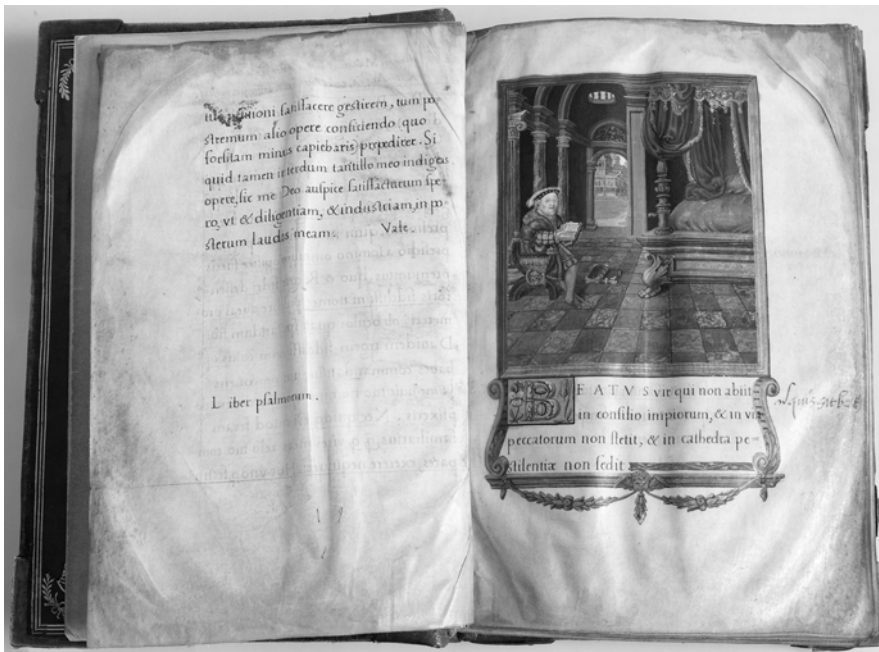 satisfacere gestirem, tum po-
stremum alio opere conficiendo quo
forsitam minus capiebaris, prępedirer. Si
quid tamen interdum tantillo meo indigeas
opere, sic me Deo auspice satisfacturum spe-
ro, vt & diligentiam, & industriam, in po-
sterum laudes meam. Vale.
Liber psalmorum.
BEATVS vir qui non abiit
in consilio impiorum, & in via
peccatorum non stetit, & in cathedra pe-
stilentiæ non sedit